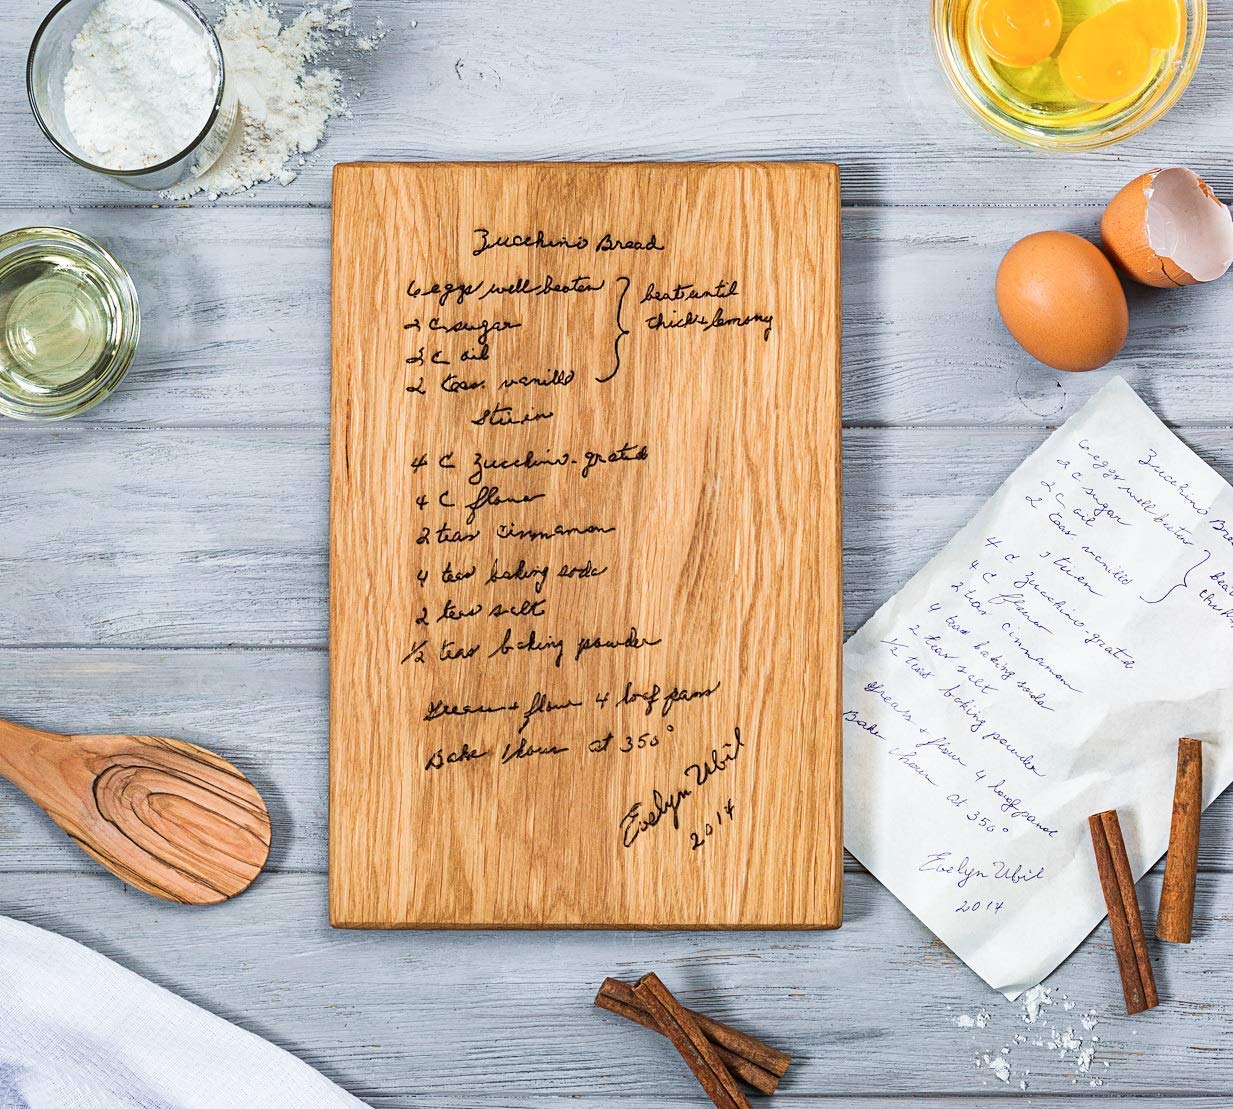 Zucchini Bread
6 eggs well beaten } beat until
2 C sugar thick & lemony
2 C oil
2 teas. vanilla
Stir in
4 C Zucchini-grated
4 C flour
2 teas cinnamon
4 teas baking soda
2 teas salt
1/2 teas baking powder
Grease + flour 4 loaf pans
Bake 1 hour at 350°
Evelyn Ubil
2014
Zucchini Bre
6 eggs well beaten } beat
2 C sugar
2 C oil
2 teas vanilla
Stir in
4 C Zucchini-grated
4 C flour
2 teas cinnamon
4 teas baking soda
2 teas salt
1/2 teas baking powder
Grease + flour 4 loaf pans
Bake 1 hour at 350°
Evelyn Ubil
2014